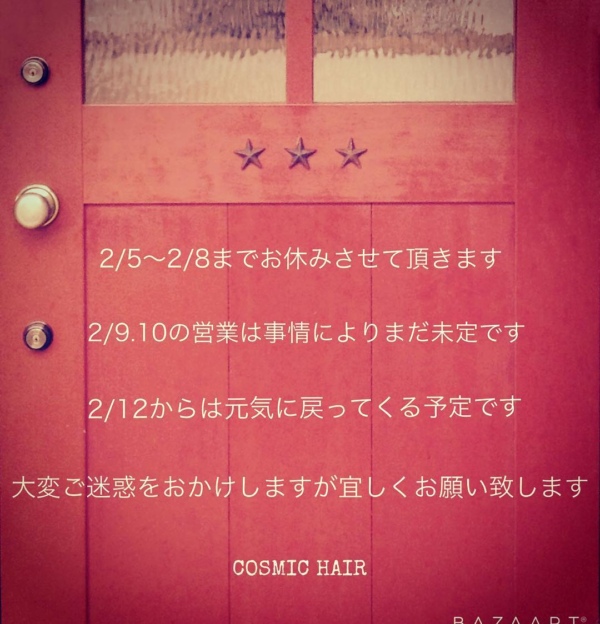 2/5〜2/8までお休みさせて頂きます
2/9.10の営業は事情によりまだ未定です
2/12からは元気に戻ってくる予定です
大変ご迷惑をおかけしますが宜しくお願い致します
COSMIC HAIR
BAZAART®